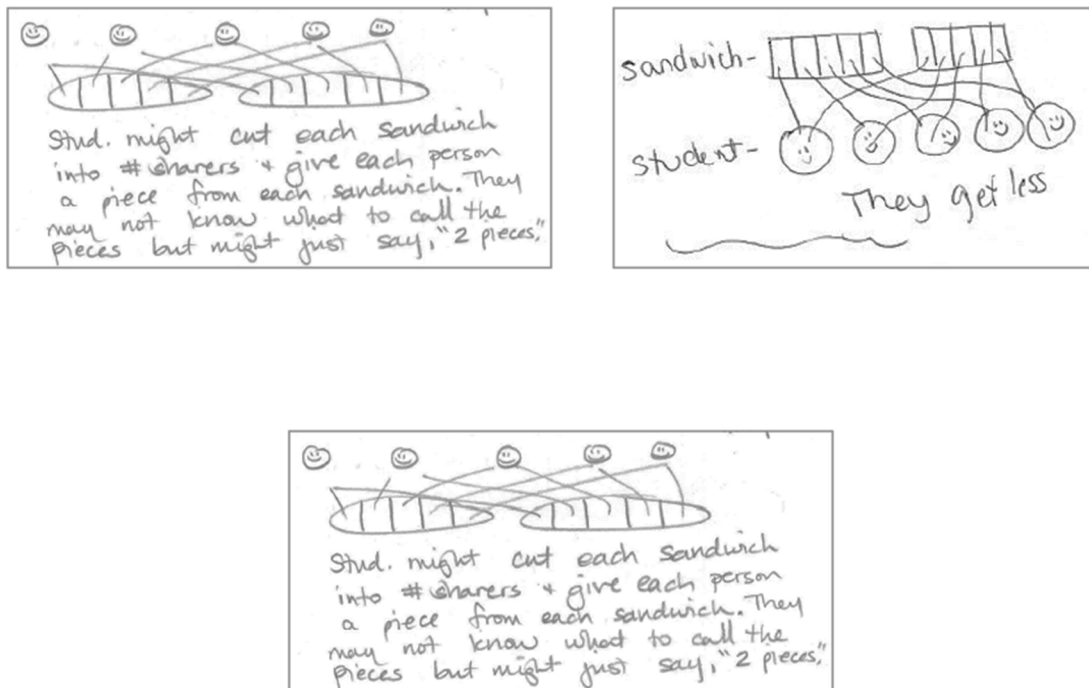 Stud. might cut each sandwich
into # sharers + give each person
a piece from each sandwich. They
may not know what to call the
pieces but might just say, "2 pieces."
sandwich-
student-
They get less
Stud. might cut each sandwich
into # sharers + give each person
a piece from each sandwich. They
may not know what to call the
pieces but might just say, "2 pieces."